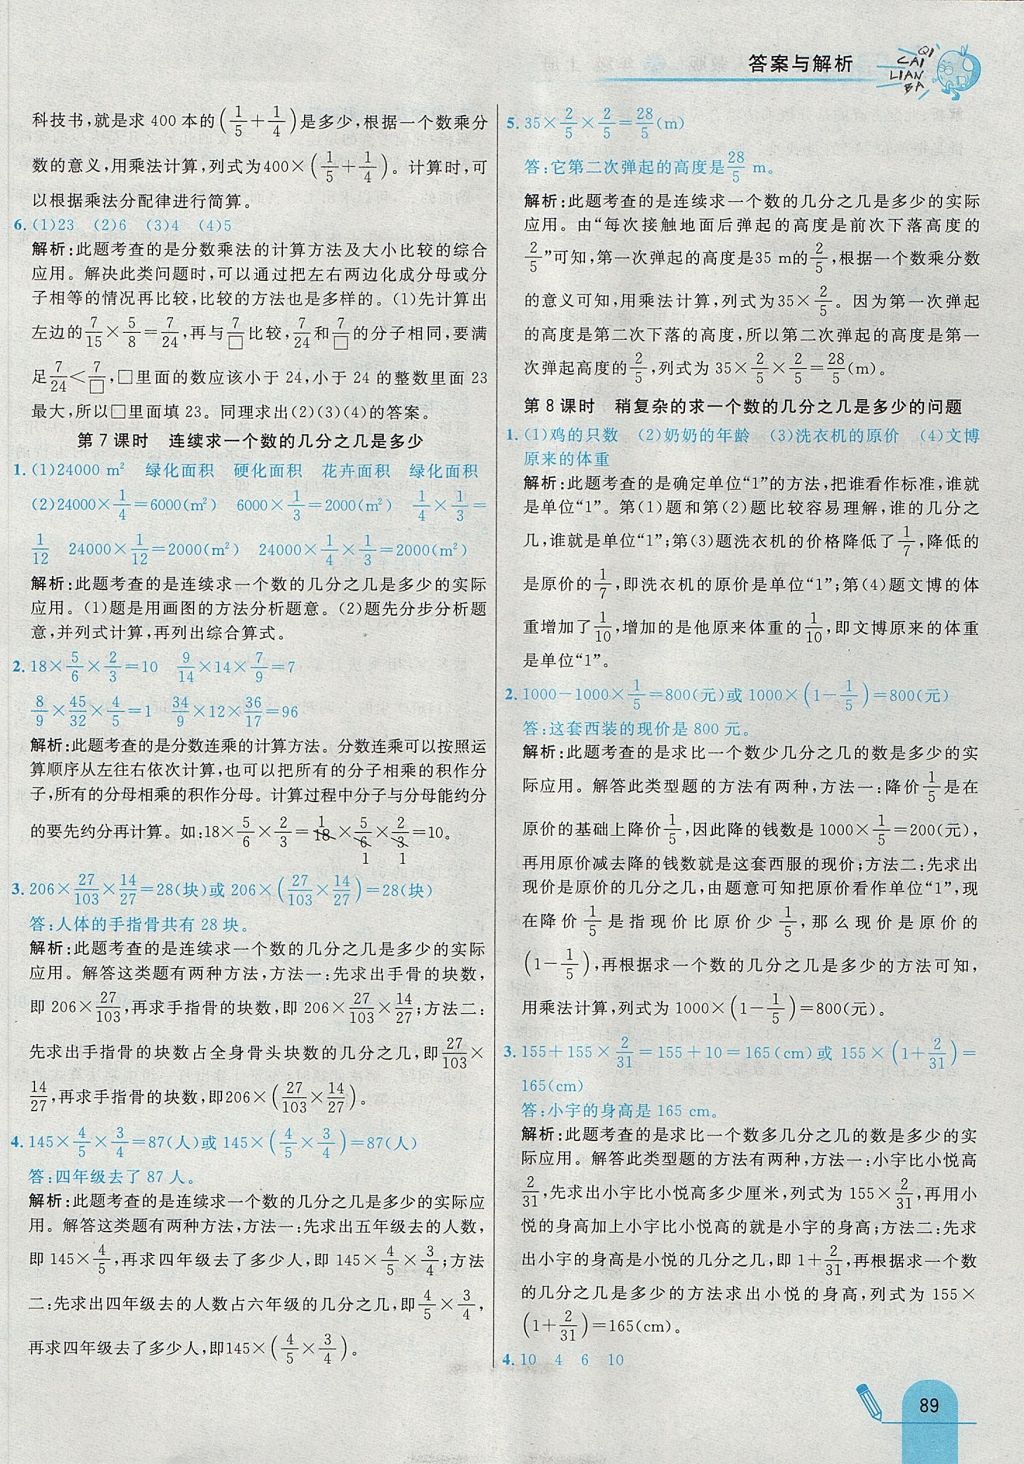 答案与解析
QI
CAI
LIAN
BA
科技书,就是求 400 本的(1/5+1/4)是多少,根据一个数乘分
数的意义,用乘法计算,列式为400×(1/5+1/4)。计算时,可
以根据乘法分配律进行简算。
6. (1)23 (2)6 (3)4 (4)5
解析:此题考查的是分数乘法的计算方法及大小比较的综合
应用。解决此类问题时,可以通过把左右两边化成分母或分
子相等的情况再比较,比较的方法也是多样的。(1)先计算出
左边的7/15×5/8=7/24,再与7/□比较,7/24和7/□的分子相同,要满
足7/24<7/□,□里面的数应该小于 24,小于 24 的整数里面 23
最大,所以□里面填 23。同理求出(2)(3)(4)的答案。
第 7 课时 连续求一个数的几分之几是多少
1. (1)24000 m² 绿化面积 硬化面积 花卉面积 绿化面积
(2)24000×1/4=6000(m²) 6000×1/3=2000(m²) 1/4×1/3=
1/12 24000×1/12=2000(m²) 24000×1/4×1/3=2000(m²)
解析:此题考查的是连续求一个数的几分之几是多少的实际
应用。(1)题是用画图的方法分析题意。(2)题先分步分析题
意,并列式计算,再列出综合算式。
2. 18×5/6×2/3=10 9/14×14×7/9=7
8/9×45/32×4/5=1 34/9×12×36/17=96
解析:此题考查的是分数连乘的计算方法。分数连乘可以按照运
算顺序从左往右依次计算,也可以把所有的分子相乘的积作分
子,所有的分母相乘的积作分母。计算过程中分子与分母能约分
的要先约分再计算。如:18×5/6×2/3=18×5/6×2/3=10。
3. 206×27/103×14/27=28(块)或 206×(27/103×14/27)=28(块)
答:人体的手指骨共有 28 块。
解析:此题考查的是连续求一个数的几分之几是多少的实际
应用。解答这类题有两种方法,方法一:先求出手骨的块数,
即 206×27/103,再求手指骨的块数,即 206×27/103×14/27;方法二:
先求出手指骨的块数占全身骨头块数的几分之几,即27/103×
14/27,再求手指骨的块数,即206×(27/103×14/27)。
4. 145×4/5×3/4=87(人)或 145×(4/5×3/4)=87(人)
答:四年级去了 87 人。
解析:此题考查的是连续求一个数的几分之几是多少的实际应
用。解答这类题有两种方法,方法一:先求出五年级去的人数,
即 145×4/5,再求四年级去了多少人,即 145×4/5×3/4;方法
二:先求出四年级去的人数占六年级的几分之几,即4/5×3/4,
再求四年级去了多少人,即145×(4/5×3/4)。
5. 35×2/5×2/5=28/5(m)
答:它第二次弹起的高度是28/5 m。
解析:此题考查的是连续求一个数的几分之几是多少的实际
应用。由“每次接触地面后弹起的高度是前次下落高度的
2/5”可知,第一次弹起的高度是35 m的2/5,根据一个数乘分数
的意义可知,用乘法计算,列式为35×2/5。因为第一次弹起
的高度是第二次下落的高度,所以第二次弹起的高度是第一
次弹起高度的2/5,列式为 35×2/5×2/5=28/5(m)。
第 8 课时 稍复杂的求一个数的几分之几是多少的问题
1. (1)鸡的只数 (2)奶奶的年龄 (3)洗衣机的原价 (4)文博
原来的体重
解析:此题考查的是确定单位“1”的方法,把谁看作标准,谁就
是单位“1”。第(1)题和第(2)题比较容易理解,谁的几分之
几,谁就是单位“1”;第(3)题洗衣机的价格降低了1/7,降低的
是原价的1/7,即洗衣机的原价是单位“1”;第(4)题文博的体
重增加了1/10,增加的是他原来体重的1/10,即文博原来的体重
是单位“1”。
2. 1000-1000×1/5=800(元)或 1000×(1-1/5)=800(元)
答:这套西装的现价是 800 元。
解析:此题考查的是求比一个数少几分之几的数是多少的实
际应用。解答此类型题的方法有两种,方法一:降价1/5是在
原价的基础上降价1/5,因此降的钱数是 1000×1/5=200(元),
再用原价减去降的钱数就是这套西服的现价;方法二:先求出
现价是原价的几分之几,由题意可知把原价看作单位“1”,现
在降价1/5是指现价比原价少1/5,那么现价是原价的
(1-1/5),再根据求一个数的几分之几是多少的方法可知,
用乘法计算,列式为 1000×(1-1/5)=800(元)。
3. 155+155×2/31=155+10=165(cm)或 155×(1+2/31)=
165(cm)
答:小宇的身高是 165 cm。
解析:此题考查的是求比一个数多几分之几的数是多少的实
际应用。解答此类型题的方法有两种,方法一:小宇比小悦高
2/31,先求出小宇比小悦高多少厘米,列式为 155×2/31,再用小
悦的身高加上小宇比小悦高的就是小宇的身高;方法二:先求
出小宇的身高是小悦的几分之几,即 1+2/31,再根据求一个数
的几分之几是多少的方法求出小悦的身高,列式为 155×
(1+2/31)=165(cm)。
4. 10 4 6 10
89